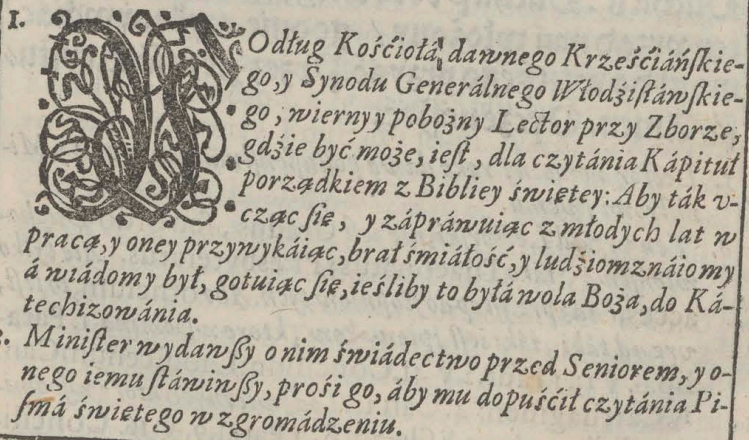 1.
WOdług Kośćiołá dawnego Krześćiáńſkie-
go, y Synodu Generálnego Włodźiſłáwſkie-
go, wierny y pobożny Lector przy Zborze,
gdźie być może, ieſt, dla czytánia Kápituł
porządkiem z Bibliey świętey: Aby ták v-
cząc ſię, y zápráwuiąc z młodych lat w
pracą, y oney przywykáiąc, brał śmiáłość, y ludźiom znáiomy
á wiádomy był, gotuiąc ſię, ieśliby to byłá wola Boża, do Ká-
techizowánia.
Miniſter wydawſſy o nim świádectwo przed Seniorem, y o-
nego iemu ſtáwiwſſy, prośi go, áby mu dopuśćił czytánia Pi-
ſmá świętego w zgromádzeniu.